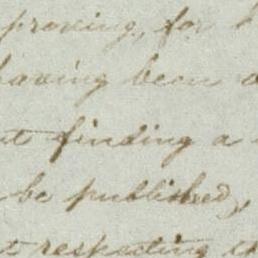 proving, for
having been
finding a
be published,
respecting